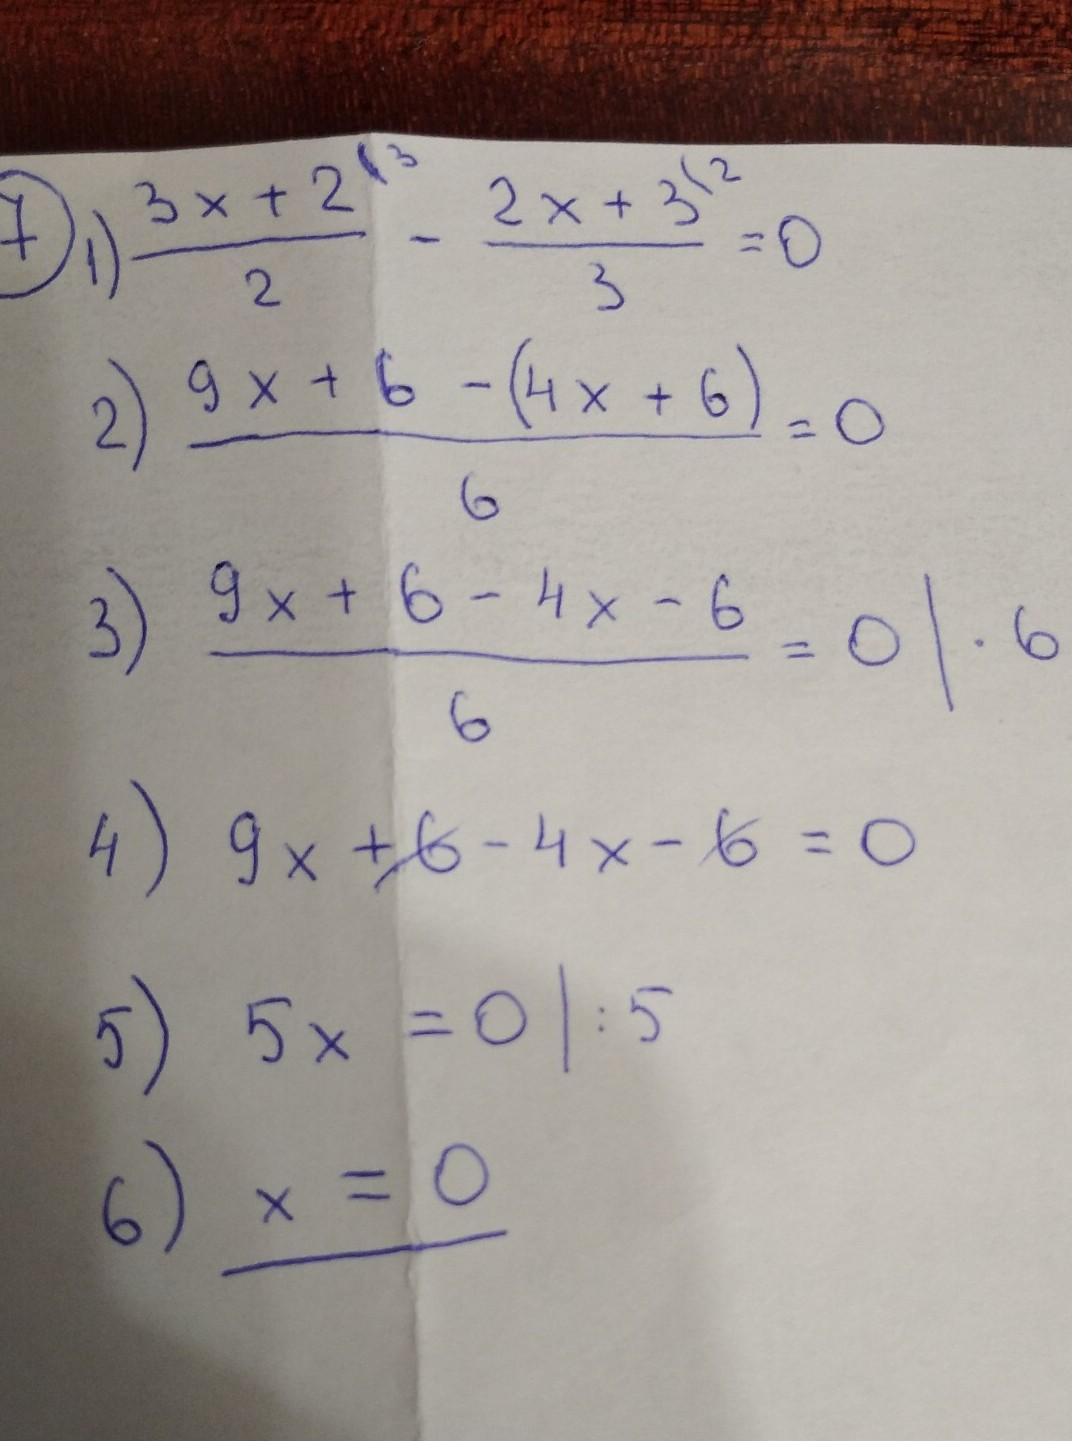 7 1) (3x + 2)/2 (3 - (2x + 3)/3 (2 = 0
2) (9x + 6 - (4x + 6))/6 = 0
3) (9x + 6 - 4x - 6)/6 = 0 | · 6
4) 9x + 6 - 4x - 6 = 0
5) 5x = 0 | : 5
6) x = 0